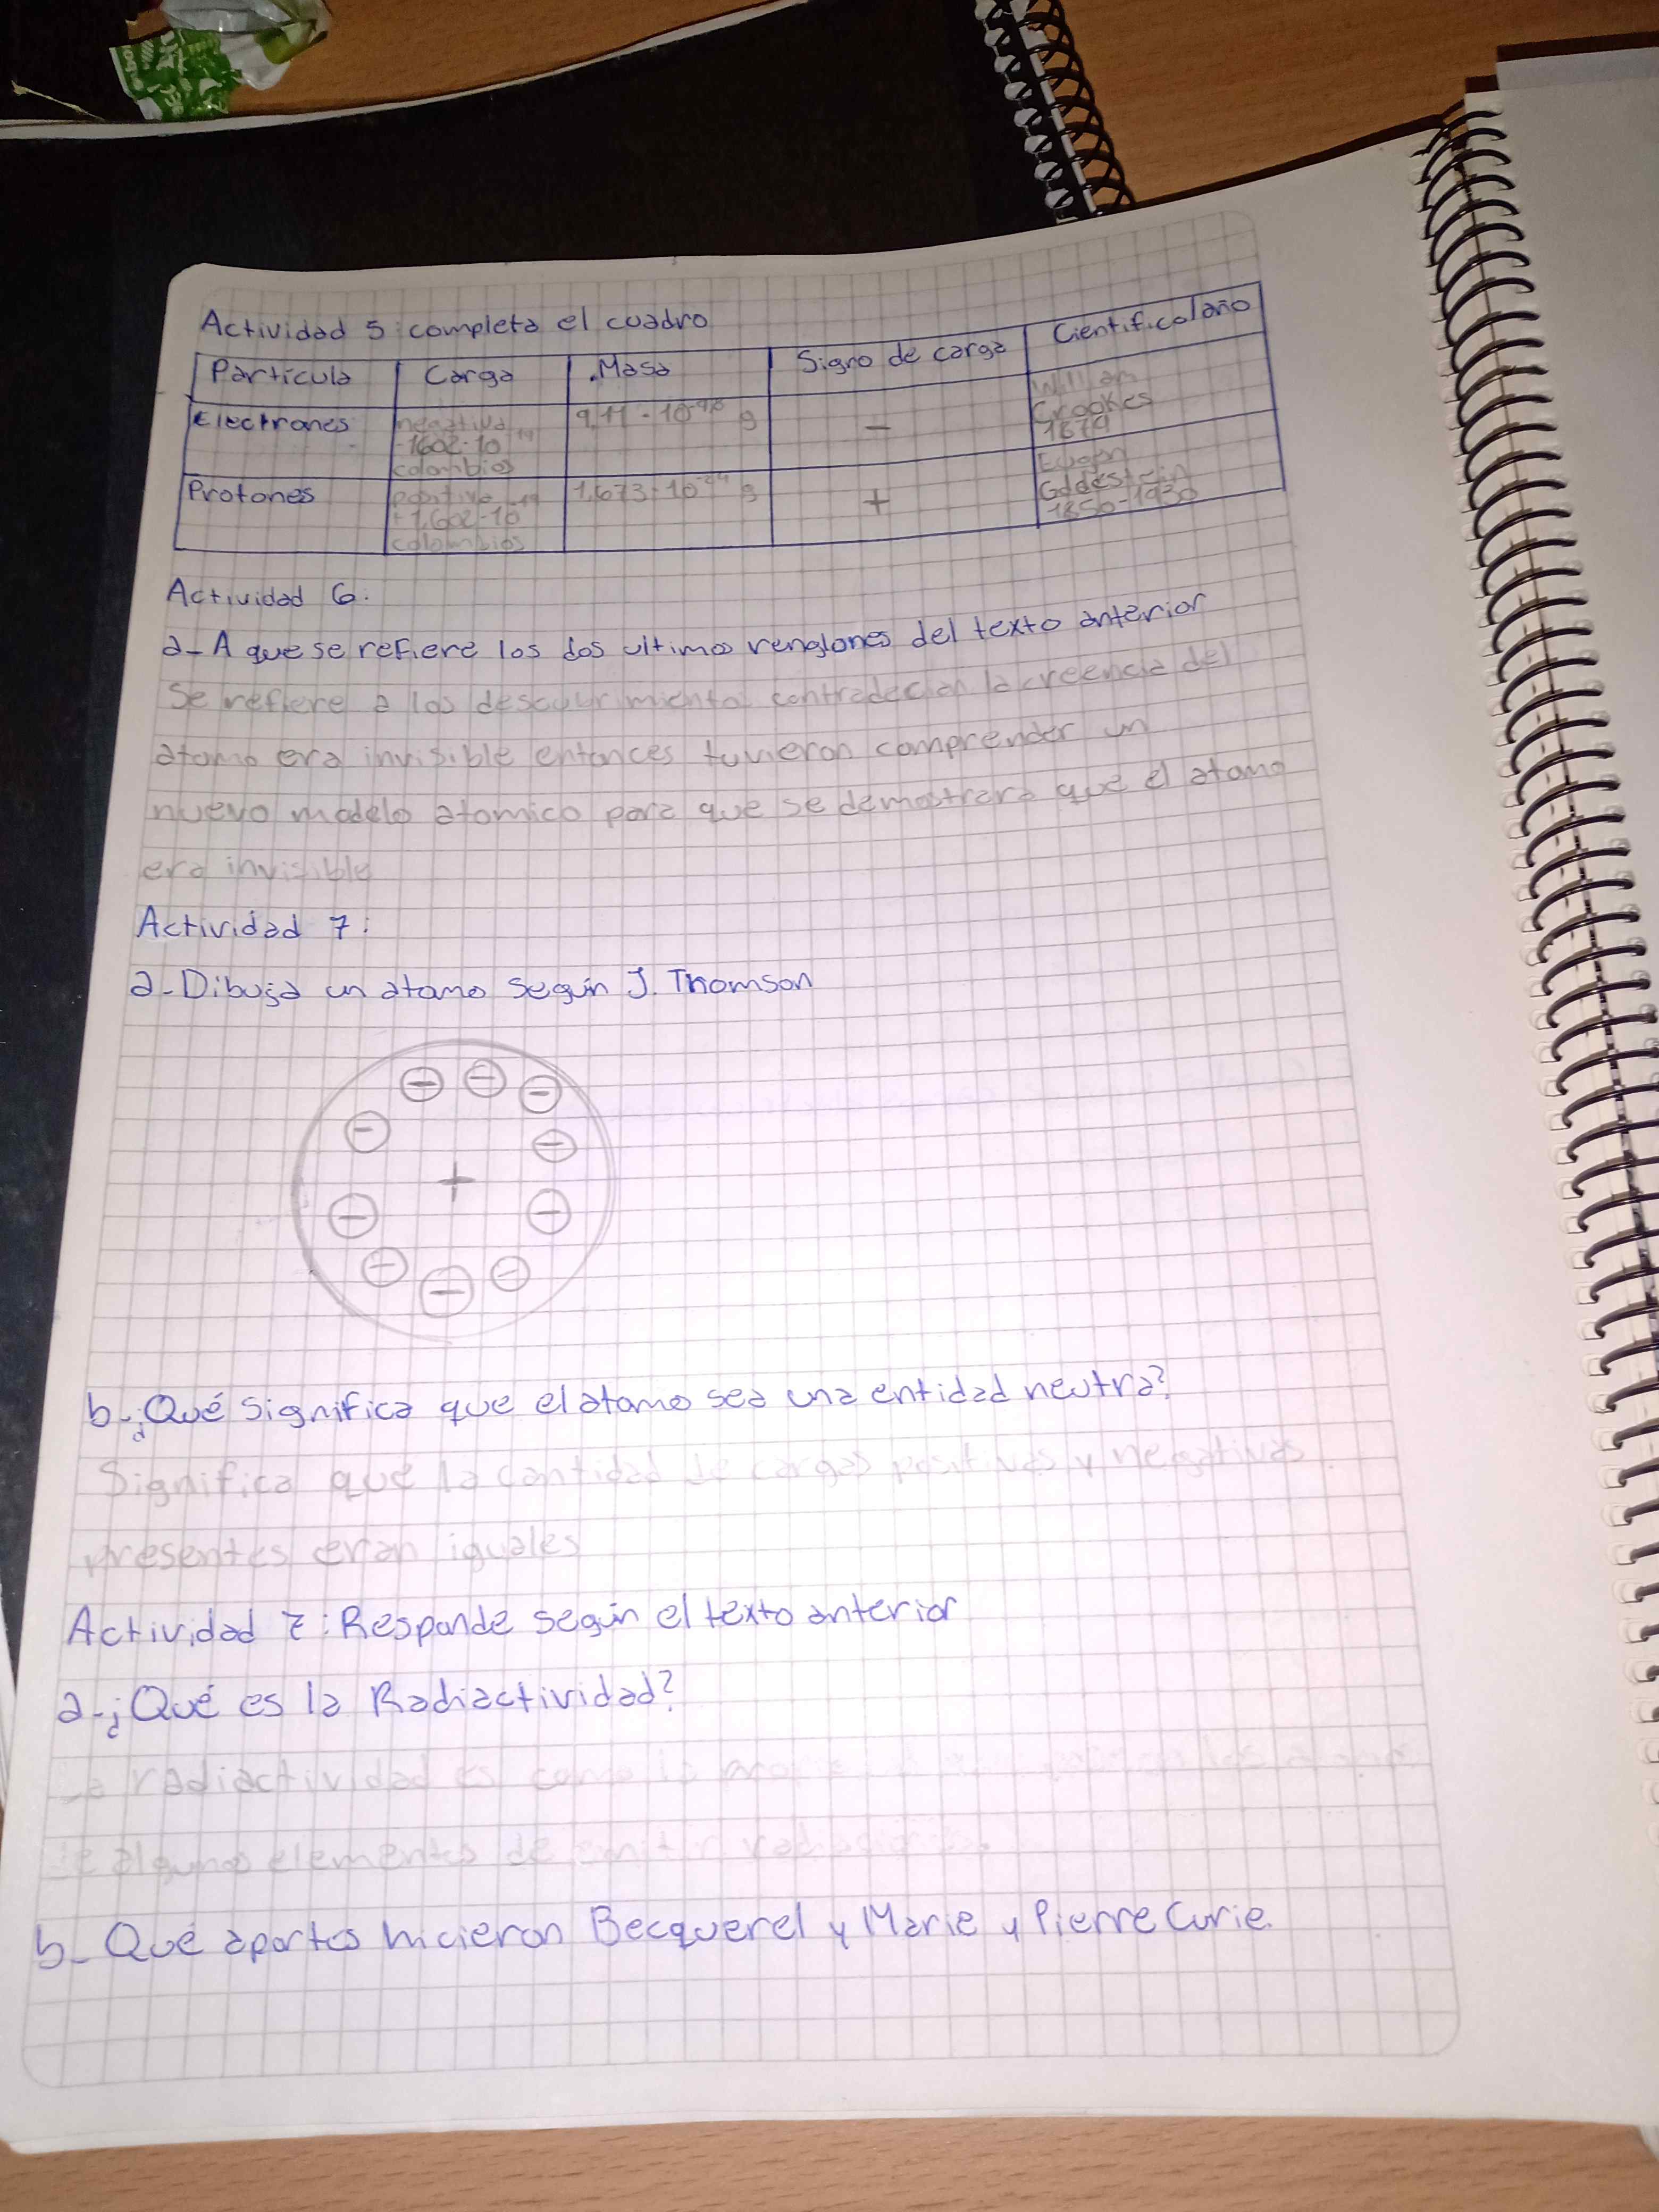 Actividad 5: completa el cuadro
Particula Carga Masa Signo de carga Cientifico/año
Electrones negativa -1602·10⁻¹⁹ colombios 9,11·10 g - William Crookes 1879
Protones positiva +1,602·10⁻¹⁹ colombios 1,673·10⁻²⁴ g + Eugen Goldestein 1850-1930
Actividad 6:
a- A que se refiere los dos ultimos renglones del texto anterior
Se refiere a los descubrimientos contradecian la creencia del
atomo era invisible entonces tuvieron comprender un
nuevo modelo atomico para que se demostrara que el atomo
era invisible
Actividad 7:
a- Dibuja un atomo según J. Thomson
- - -
- -
+
- -
- - -
b- ¿Qué significa que el atomo sea una entidad neutra?
Significa que la cantidad de cargas positivas y negativas
presentes eran iguales
Actividad 7: Responde según el texto anterior
a- ¿Qué es la Radiactividad?
La radiactividad es como la
de algunos elementos de emitir
b- Qué aportes hicieron Becquerel y Marie y Pierre Curie.